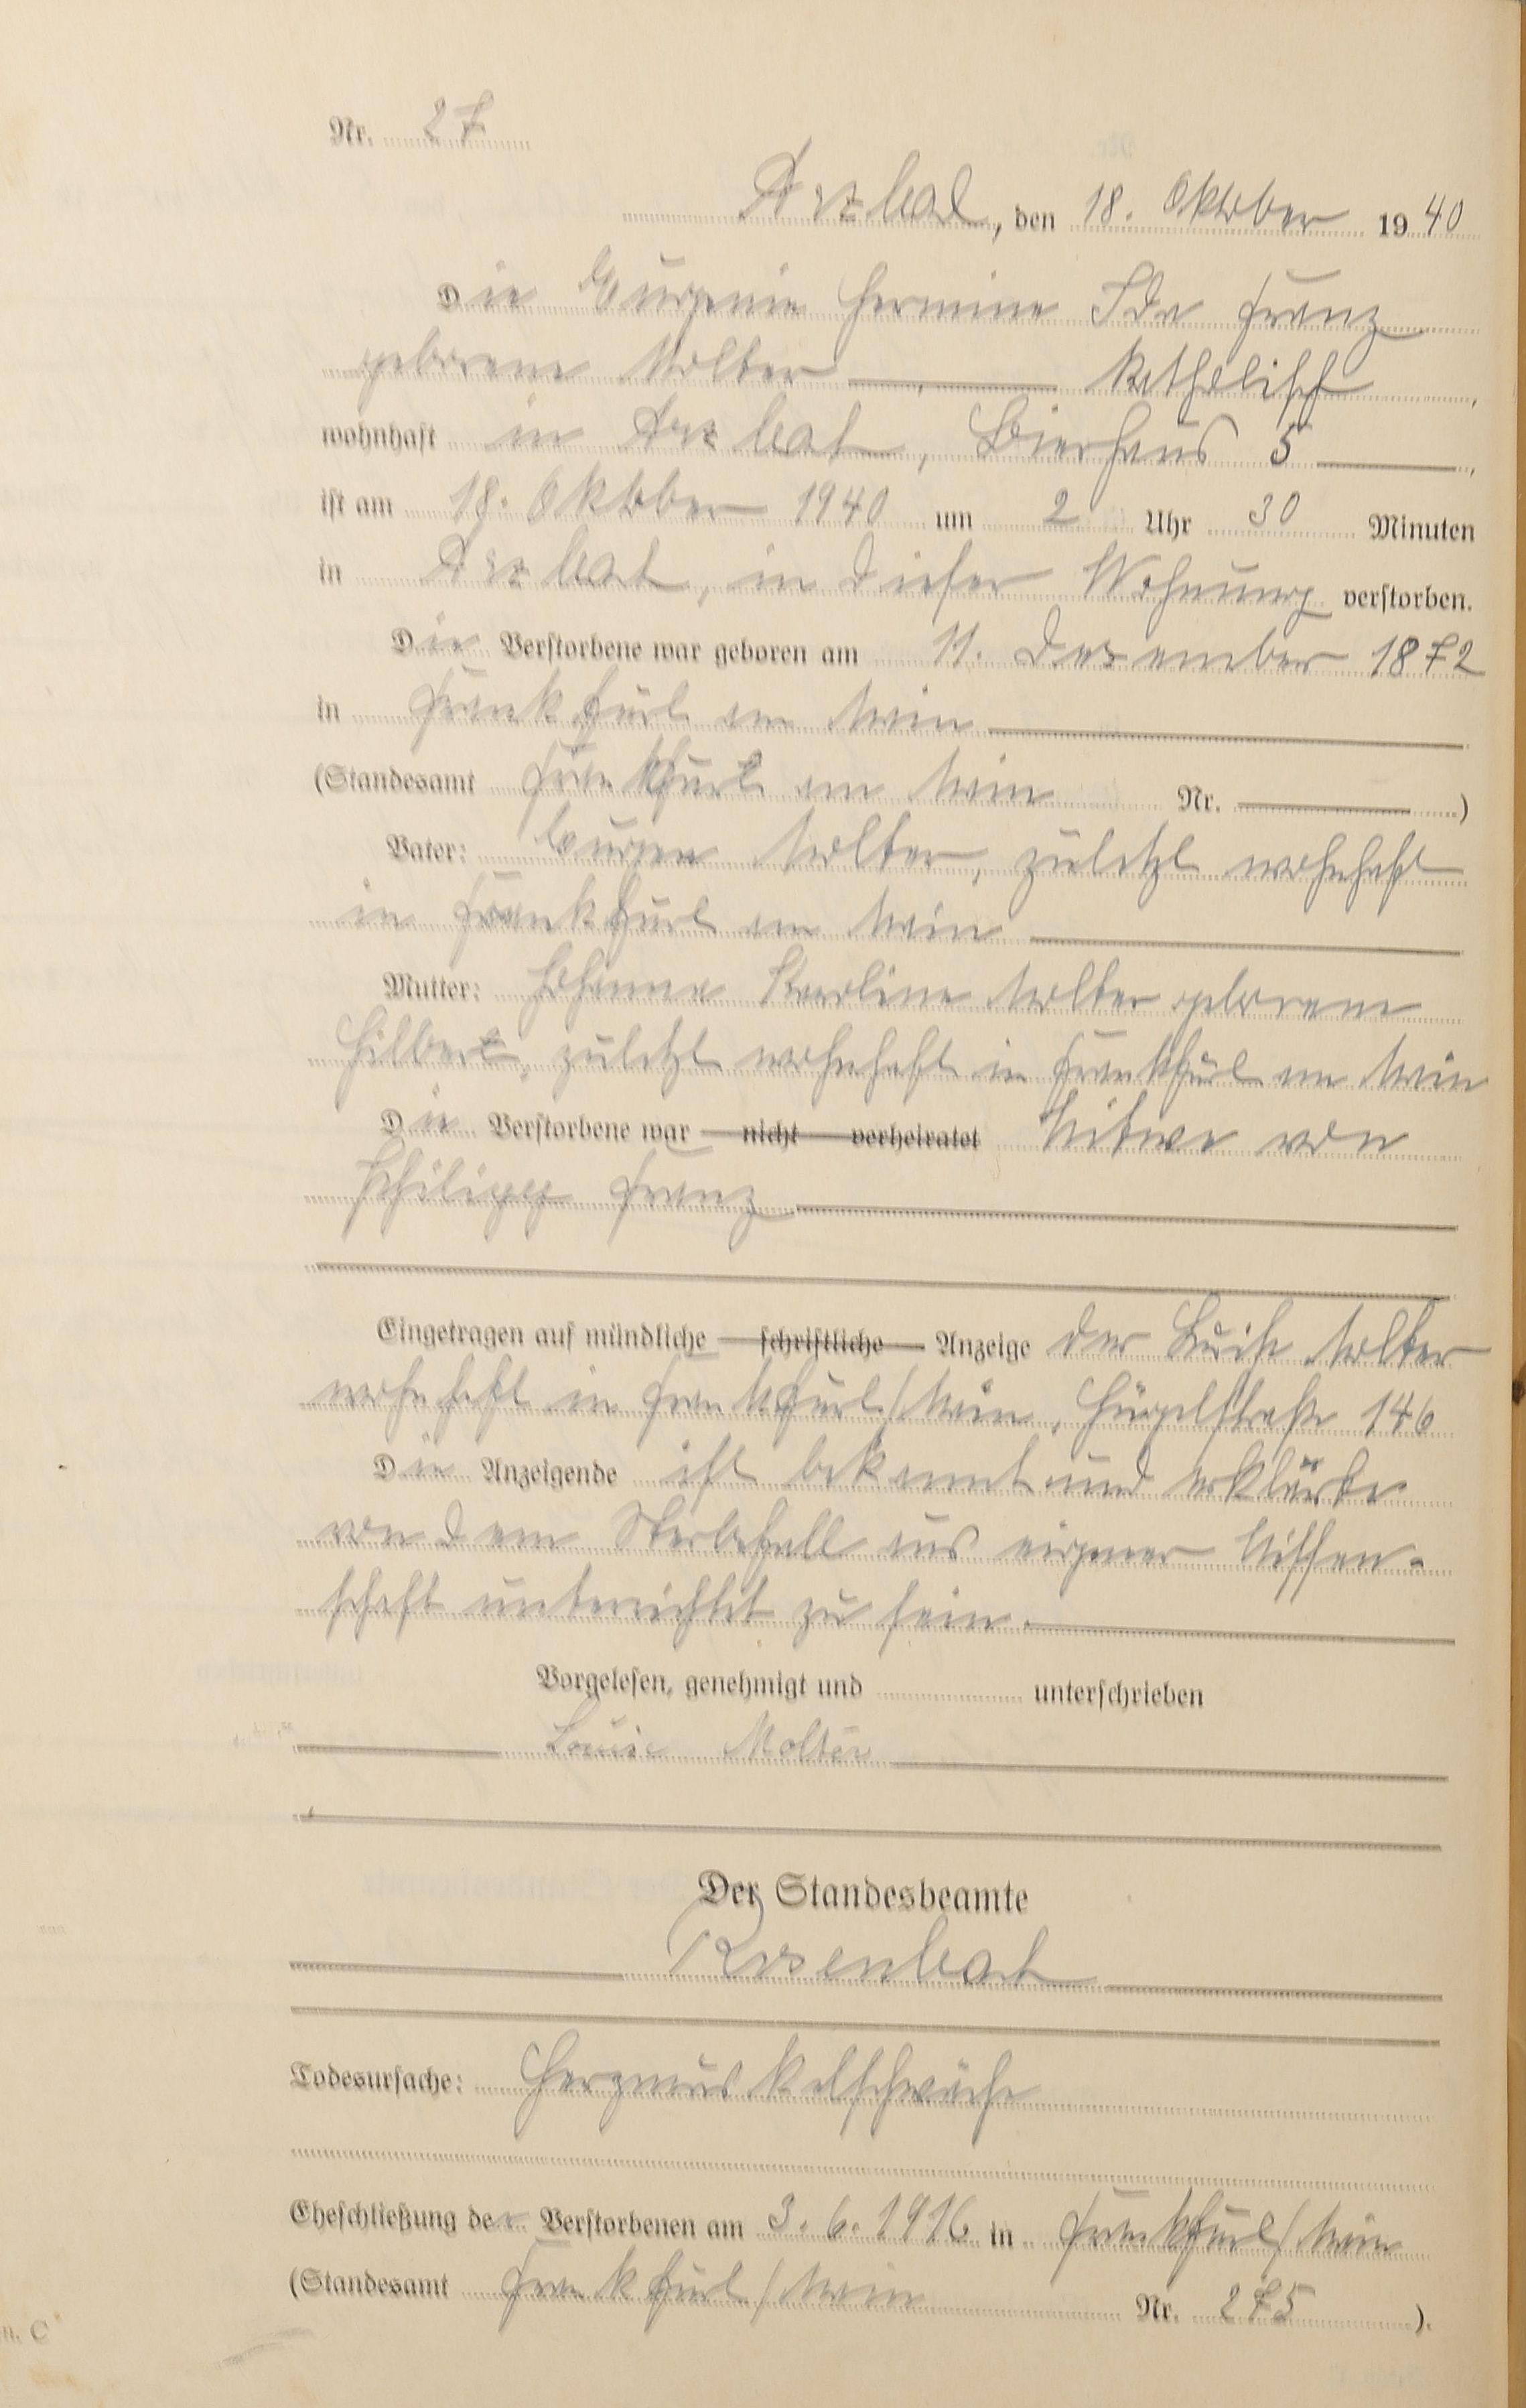 Nr. 27
Arzbach, den 18. Oktober 1940
Die Eugenie Hermine Ida Franz
geborene Molter, katholisch,
wohnhaft in Arzbach, Bierhaus 5,
ist am 18. Oktober 1940 um 2 Uhr 30 Minuten
in Arzbach, in dieser Wohnung verstorben.
Die Verstorbene war geboren am 11. Dezember 1872
in Frankfurt am Main
(Standesamt Frankfurt am Main Nr.)
Vater: Eugen Molter, zuletzt wohnhaft
in Frankfurt am Main
Mutter: Johanna Karoline Molter geborene
Hilbert, zuletzt wohnhaft in Frankfurt am Main
Die Verstorbene war nicht verheiratet Witwe von
Philipp Franz
Eingetragen auf mündliche schriftliche Anzeige der Luise Molter
wohnhaft in Frankfurt/Main, Hügelstraße 146
Die Anzeigende ist bekannt und erklärte
von dem Sterbefall aus eigener Wissen-
schaft unterrichtet zu sein.
Vorgelesen, genehmigt und unterschrieben
Louise Molter
Der Standesbeamte
Rosenbach
Todesursache: Herzmuskelschwäche
Eheschließung der Verstorbenen am 3.6.1916 in Frankfurt/Main
(Standesamt Frankfurt/Main Nr. 275).